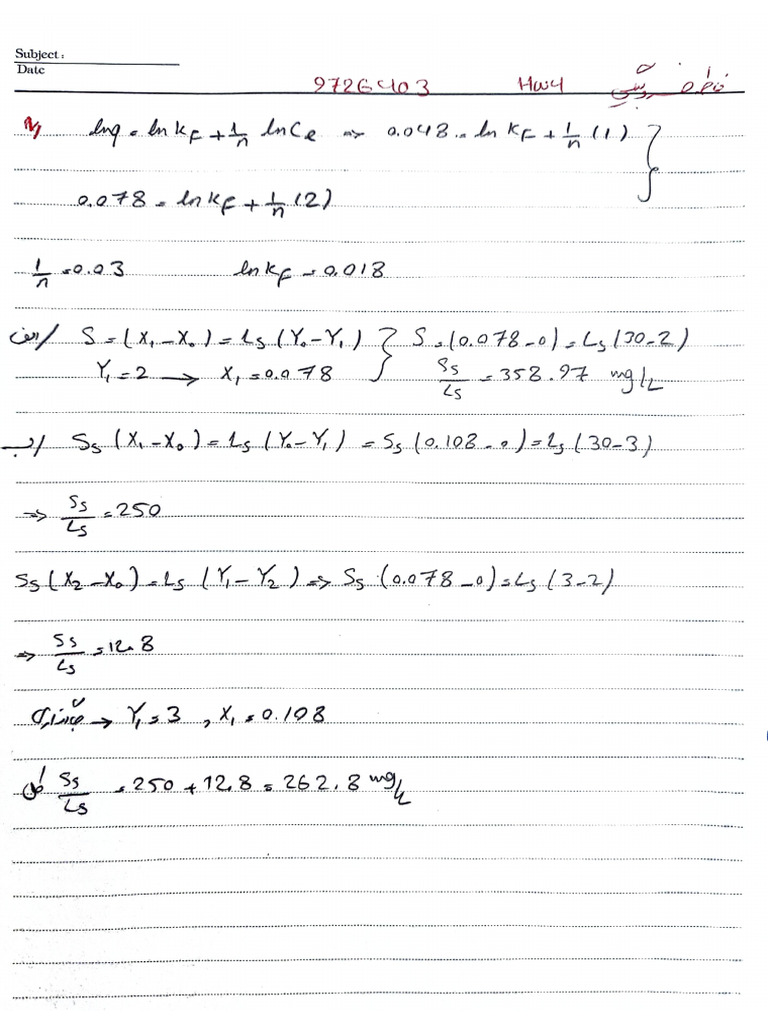 Subject:
Date
9726403 HW4
ln q = ln K_F + 1/n ln C_e => 0.048 = ln K_F + 1/n (1)
0.078 = ln K_F + 1/n (2)
1/n = 0.03 ln K_F = 0.018
الف/ S = (X₁ - X₀) = L_S (Y₀ - Y₁) } S = (0.078 - 0) = L_S (30 - 2)
Y₁ = 2 → X₁ = 0.078 S_S/L_S = 358.97 mg/L
ب/ S_S (X₁ - X₀) = L_S (Y₀ - Y₁) = S_S (0.108 - 0) = L_S (30 - 3)
=> S_S/L_S = 250
S_S (X₂ - X₀) = L_S (Y₁ - Y₂) => S_S (0.078 - 0) = L_S (3 - 2)
=> S_S/L_S = 12.8
→ Y₁ = 3 , X₁ = 0.108
کل S_S/L_S = 250 + 12.8 = 262.8 mg/L